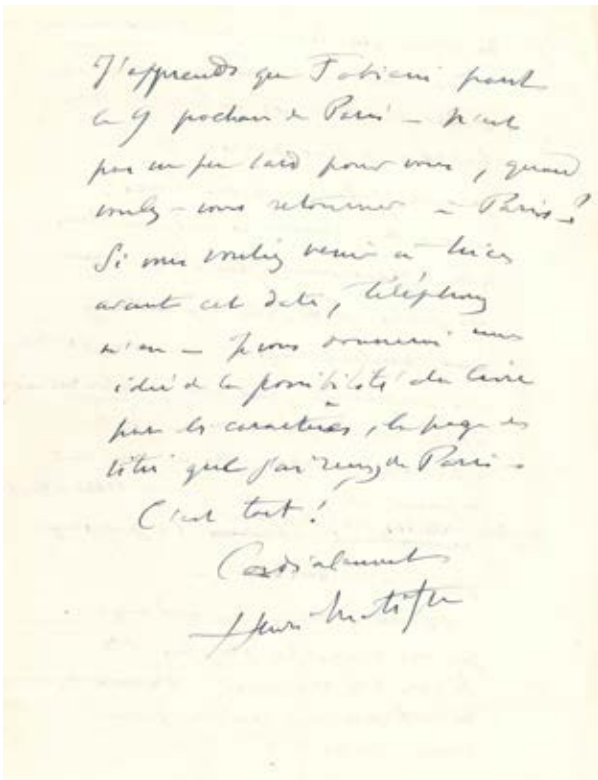 J'apprends que Fabiani part
le 9 prochain de Paris – n'est
pas un peu tard pour vous, quand
voulez-vous retourner à Paris?
Si vous vouliez venir à Nice
avant cet date, téléphonez
m'en – je vous donnerai une
idée de la possibilité du livre
par les caractères, la page de
titre que j'ai reçus de Paris –
C'est tout!
Cordialement
Henri Matisse